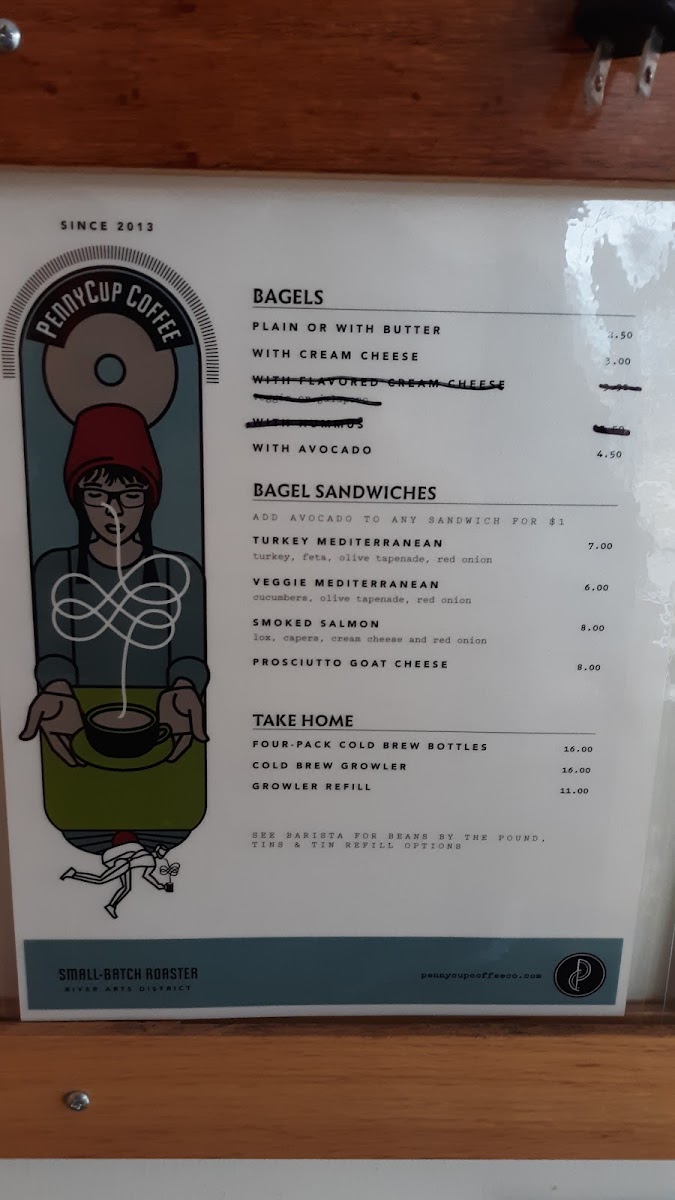 SINCE 2013
PENNYCUP COFFEE
BAGELS
PLAIN OR WITH BUTTER 2.50
WITH CREAM CHEESE 3.00
WITH FLAVORED CREAM CHEESE
WITH HUMMUS
WITH AVOCADO 4.50
BAGEL SANDWICHES
ADD AVOCADO TO ANY SANDWICH FOR $1
TURKEY MEDITERRANEAN 7.00
turkey, feta, olive tapenade, red onion
VEGGIE MEDITERRANEAN 6.00
cucumbers, olive tapenade, red onion
SMOKED SALMON 8.00
lox, capers, cream cheese and red onion
PROSCIUTTO GOAT CHEESE 8.00
TAKE HOME
FOUR-PACK COLD BREW BOTTLES 16.00
COLD BREW GROWLER 16.00
GROWLER REFILL 11.00
SEE BARISTA FOR BEANS BY THE POUND,
TINS & TIN REFILL OPTIONS
SMALL-BATCH ROASTER
RIVER ARTS DISTRICT
pennycupcoffeeco.com